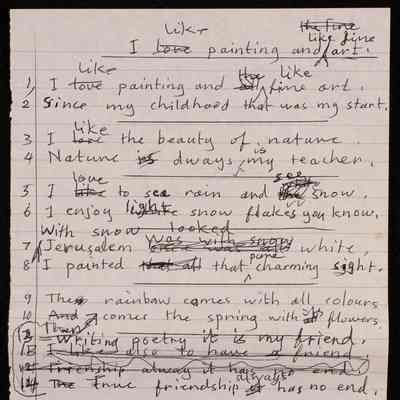 like the fine
like fine
I love painting and art.
like the like
1, I love painting and all fine art.
2 Since my childhood that was my start.
like
3 I love the beauty of nature.
is
4 Nature is always my teacher.
love see
5 I like to see rain and snow.
light
6 I enjoy white snow flakes you know.
With snow looked
was with snow
7 Jerusalem once was all white,
pure
8 I painted that all that charming sight.
9 The rainbow comes with all colours
10 And comes the spring with its flowers.
Then
13 Writing poetry it is my friend.
I like also to have a friend,
12 Friendship alway it has no end
always
14 The True friendship has no end.